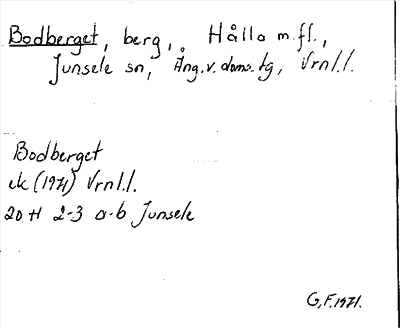 Bodberget, berg, Hålla m.fl.,
Junsele sn, Ång.v. doms.tg, Vrnl.l.
Bodberget
ek (1971) Vrnl.l.
20 H 2-3 a-b Junsele
G.F. 1971.